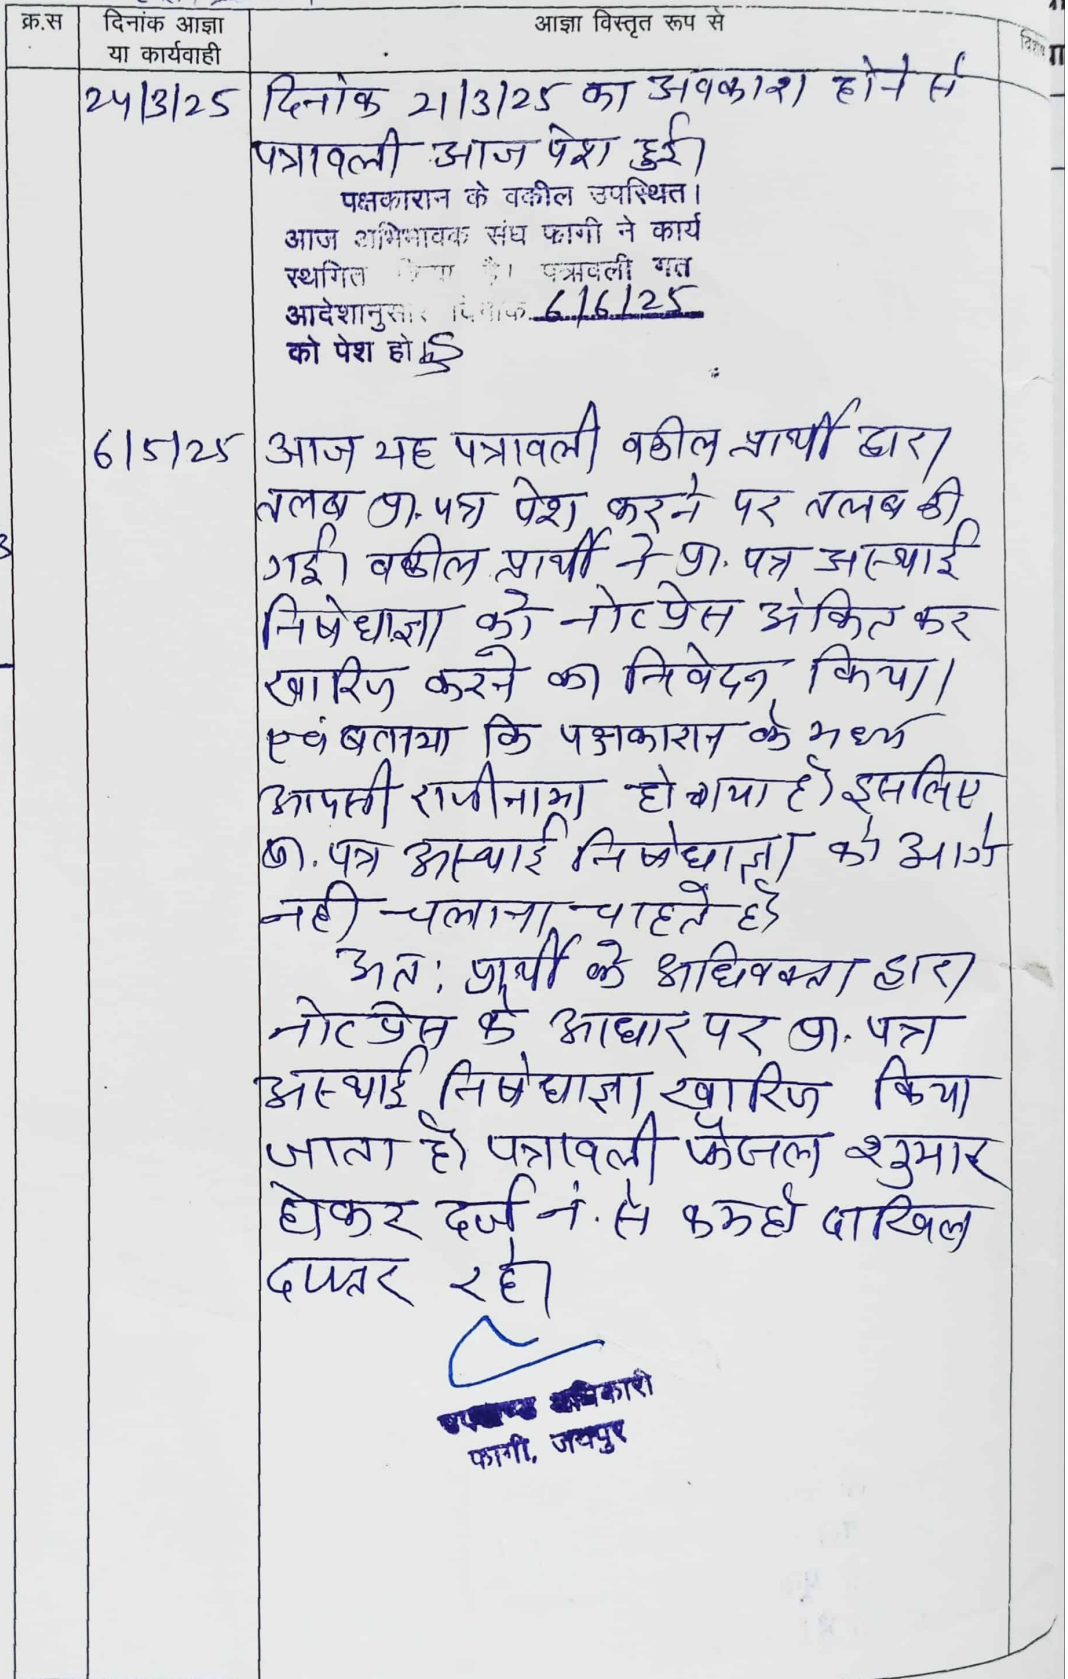 क्र.स
दिनांक आज्ञा
या कार्यवाही
आज्ञा विस्तृत रूप से
24/3/25 दिनांक 21/3/25 का अवकाश होने से
पत्रावली आज पेश हुई।
पक्षकारान के वकील उपस्थित।
आज अभिभावक संघ फागी ने कार्य
स्थगित किया है। पत्रावली गत
आदेशानुसार दिनांक 6/6/25
को पेश हो।
6/5/25 आज यह पत्रावली वकील प्रार्थी द्वारा
तलब प्रा. पत्र पेश करने पर तलब की
गई। वकील प्रार्थी ने प्रा. पत्र अस्थाई
निषेधाज्ञा को नोटप्रेस अंकित कर
खारिज करने का निवेदन किया।
एवं बताया कि पक्षकारान के मध्य
आपसी राजीनामा हो गया है। इसलिए
प्रा. पत्र अस्थाई निषेधाज्ञा को आगे
नही चलाना चाहते है।
अतः प्रार्थी के अधिवक्ता द्वारा
नोटप्रेस के आधार पर प्रा. पत्र
अस्थाई निषेधाज्ञा खारिज किया
जाता है। पत्रावली फैसल शुमार
होकर दर्ज नं. से कम हो दाखिल
दफ्तर रहे।
उपखण्ड अधिकारी
फागी, जयपुर